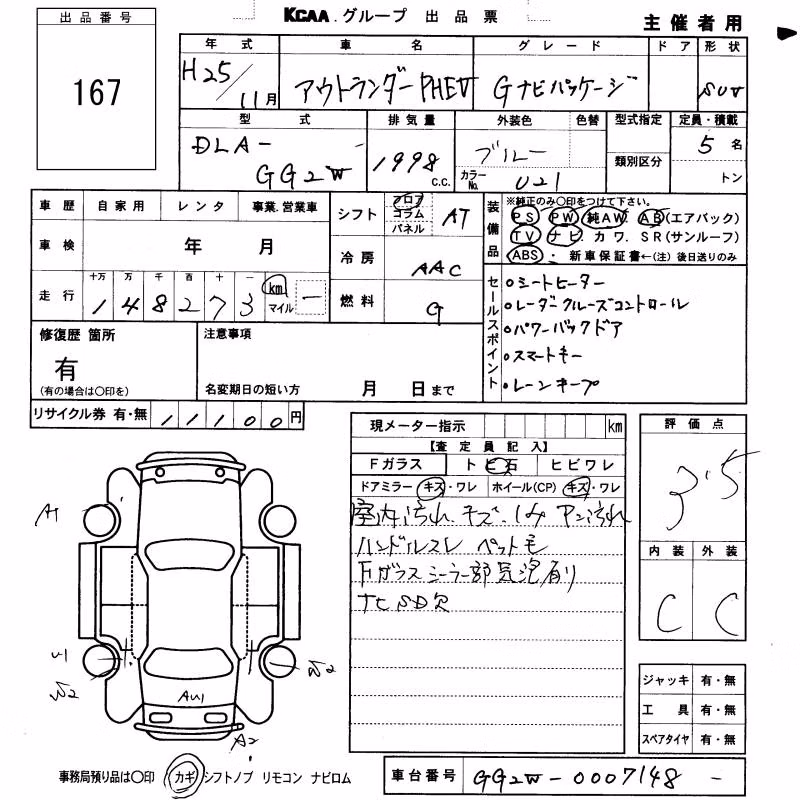 出品番号
167
KCAA グループ 出品票
主催者用
年式 車名 グレード ドア 形状
H25/11月 アウトランダーPHEV Gナビパッケージ SUV
型式 排気量 外装色 色替 型式指定 定員・積載
DLA-GG2W 1998 C.C. ブルー カラーNo. U21 類別区分 5名 トン
車歴 自家用 レンタ 事業.営業車
車検 年 月
走行 十万 万 千 百 十 一 km マイル
1 4 8 2 7 3 ー
シフト フロア コラム パネル AT
冷房 AAC
燃料 G
装備品
※純正のみ〇印をつけて下さい。
PS PW 純AW AB(エアバック)
TV ナビ カワ. SR(サンルーフ)
ABS・新車保証書←(注)後日送りのみ
セールスポイント
○シートヒーター
○レーダークルーズコントロール
○パワーバックドア
○スマートキー
○レーンキープ
修復歴 箇所
有
(有の場合は〇印を)
注意事項
名変期日の短い方 月 日まで
リサイクル券 有・無 11100円
現メーター指示 km
【査定員記入】
Fガラス トビ石 ヒビワレ
ドアミラー キズ・ワレ ホイール(CP) キズ・ワレ
室内汚れ.キズ.シミ 汚れ
ハンドルスレ ペット毛
Fガラスシーラー部気泡有り
ナビSD欠
評価点
3.5
内装 外装
C C
ジャッキ 有・無
工具 有・無
スペアタイヤ 有・無
A1
W2
W2
AU1
A2
事務局預り品は〇印 カギ シフトノブ リモコン ナビロム
車台番号 GG2W-0007148 -